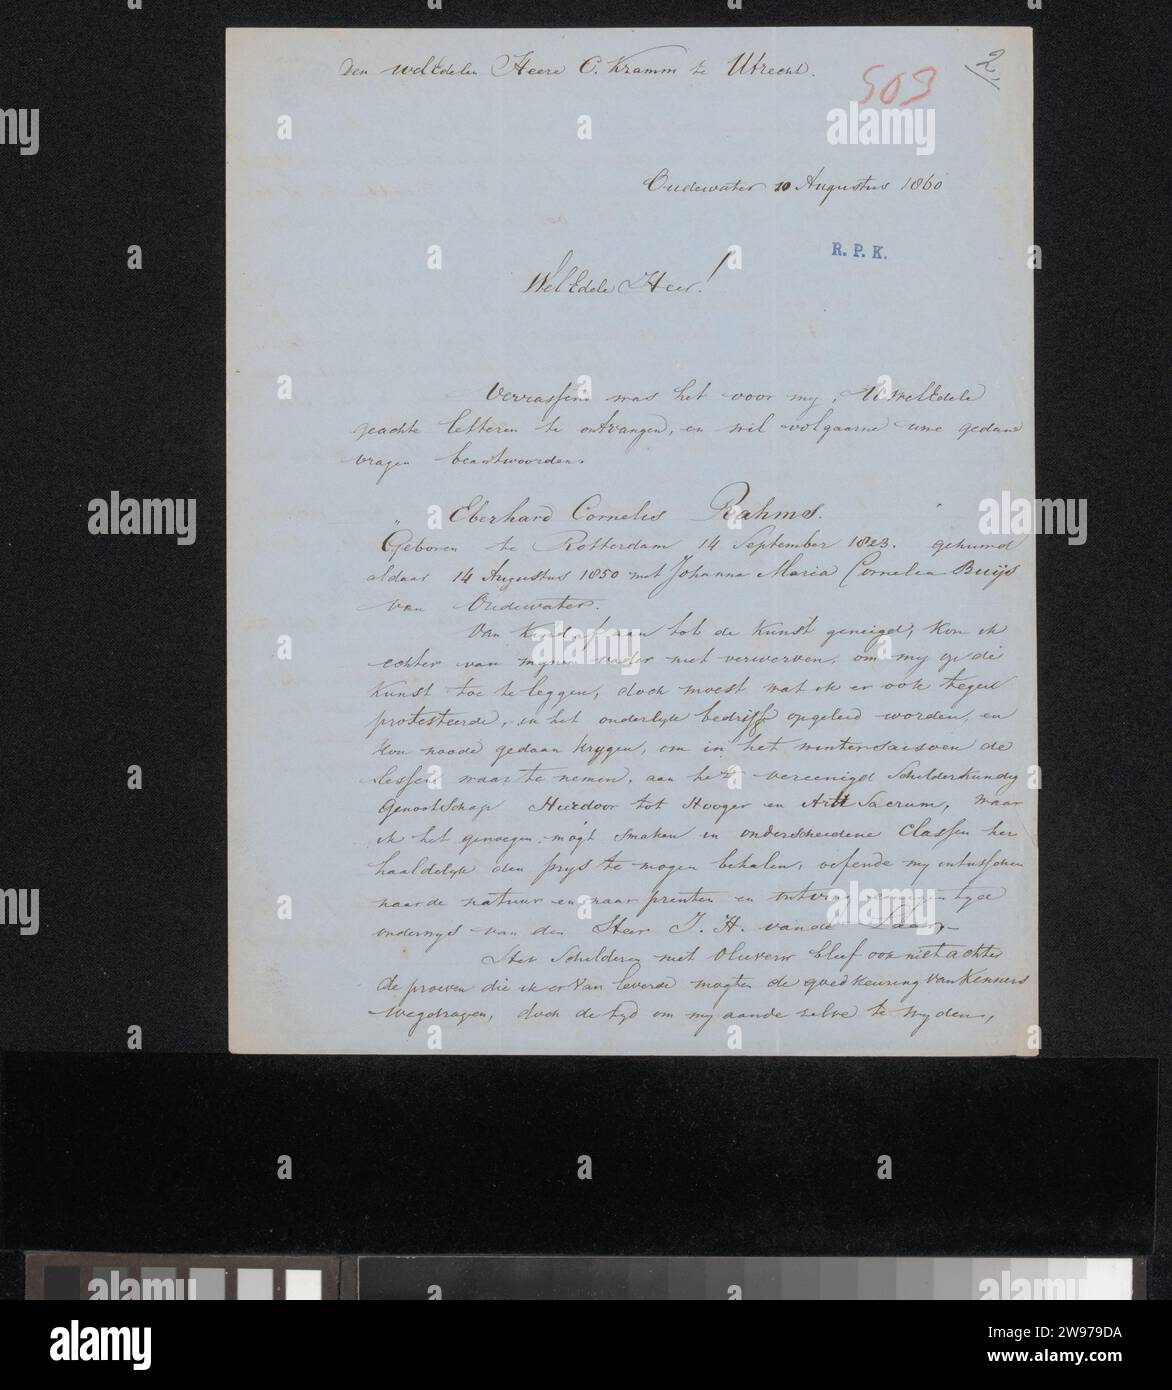 Den WelEdelen Heere C. Kramm te Utrecht.
503
2.
Oudewater 10 Augustus 1860
R. P. K.
WelEdele Heer!
Verrassend was het voor my, UWelEdele
geachte letteren te ontvangen, en wil volgaarne uwe gedane
vragen beantwoorden.
Eberhard Cornelis Rahms.
Geboren te Rotterdam 14 September 1823. gehuwd
aldaar 14 Augustus 1850 met Johanna Maria Cornelia Buijs
van Oudewater.
Van kindsaf aan tot de Kunst geneigd, kon ik
echter van mynen vader niet verwerven, om my op de
Kunst toe te leggen, doch moest wat ik er ook tegen
protesteerde, in het ouderlyke bedryf opgeleid worden, en
kon noode gedaan krygen, om in het wintersaisoen de
lessen waar te nemen, aan het vereenigd Schilderkundig
Genootschap Hierdoor tot Hooger en Arti Sacrum, waar
ik het genoegen mogt smaken in onderscheidene Classen her
haaldelyk den prys te mogen behalen, oefende my intusschen
naar de natuur en naar prenten en ontving
onderwys van den Heer J. H. van de Laar,
Het Schilderen met olieverw bleef ook niet achter
de proeven die ik er van leverde mogten de goedkeuring van Kenners
wegdragen, doch de tyd om my aan de zelve te wyden,
alamy
Image ID: 2W979DA
www.alamy.com